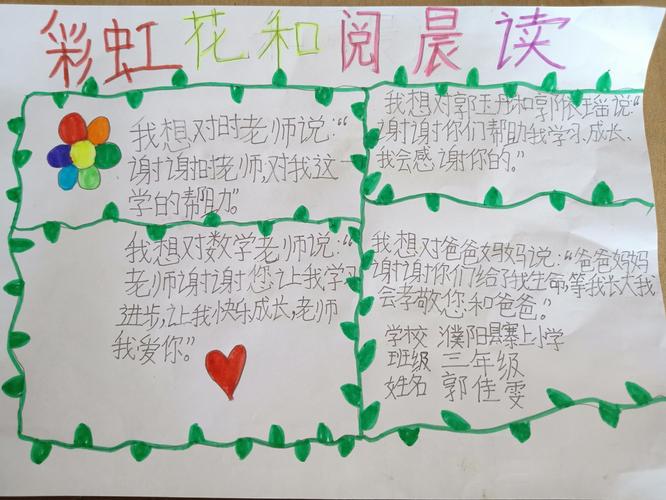 彩虹花和阅晨读
我想对时老师说:“
谢谢时老师,对我这一
学的帮助。”
我想对郭玉丹和郭依瑶说“
谢谢你们帮助我学习、成长、
我会感谢你的。”
我想对数学老师说:“
老师谢谢您让我学习
进步,让我快乐成长,老师
我爱你。”
我想对爸爸妈妈说:“爸爸妈妈
谢谢你们给了我生命,等我长大我
会孝敬您和爸爸。”
学校 濮阳县寨上小学
班级 三年级
姓名 郭佳雯